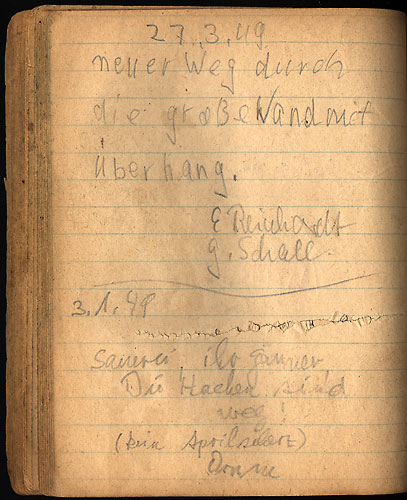 27.3.49
neuer Weg durch
die große Wand mit
Überhang.
E Reinhardt
G. Schall.
3.1.49
Die Hacken sind
weg!
(kein Aprilscherz)